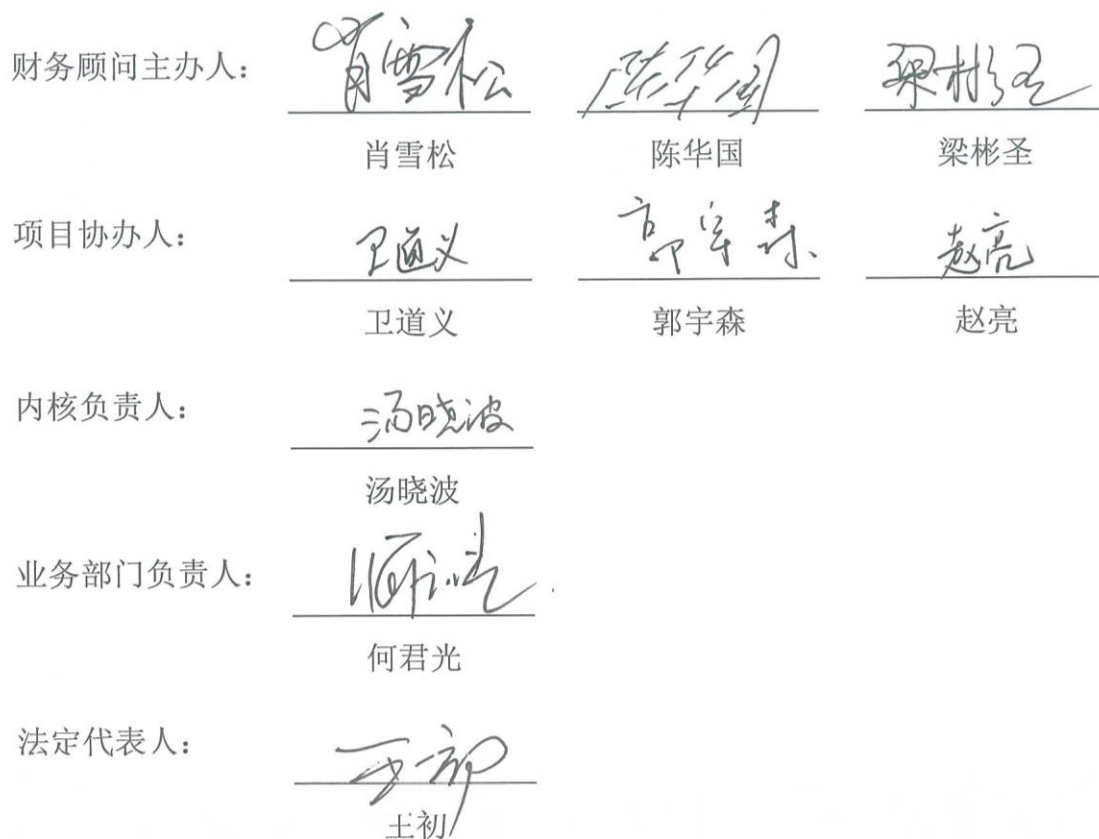 财务顾问主办人： 肖雪松 陈华国 梁彬圣
肖雪松 陈华国 梁彬圣
项目协办人： 卫道义 郭宇森 赵亮
卫道义 郭宇森 赵亮
内核负责人： 汤晓波
汤晓波
业务部门负责人：
何君光
法定代表人： 王初
王初